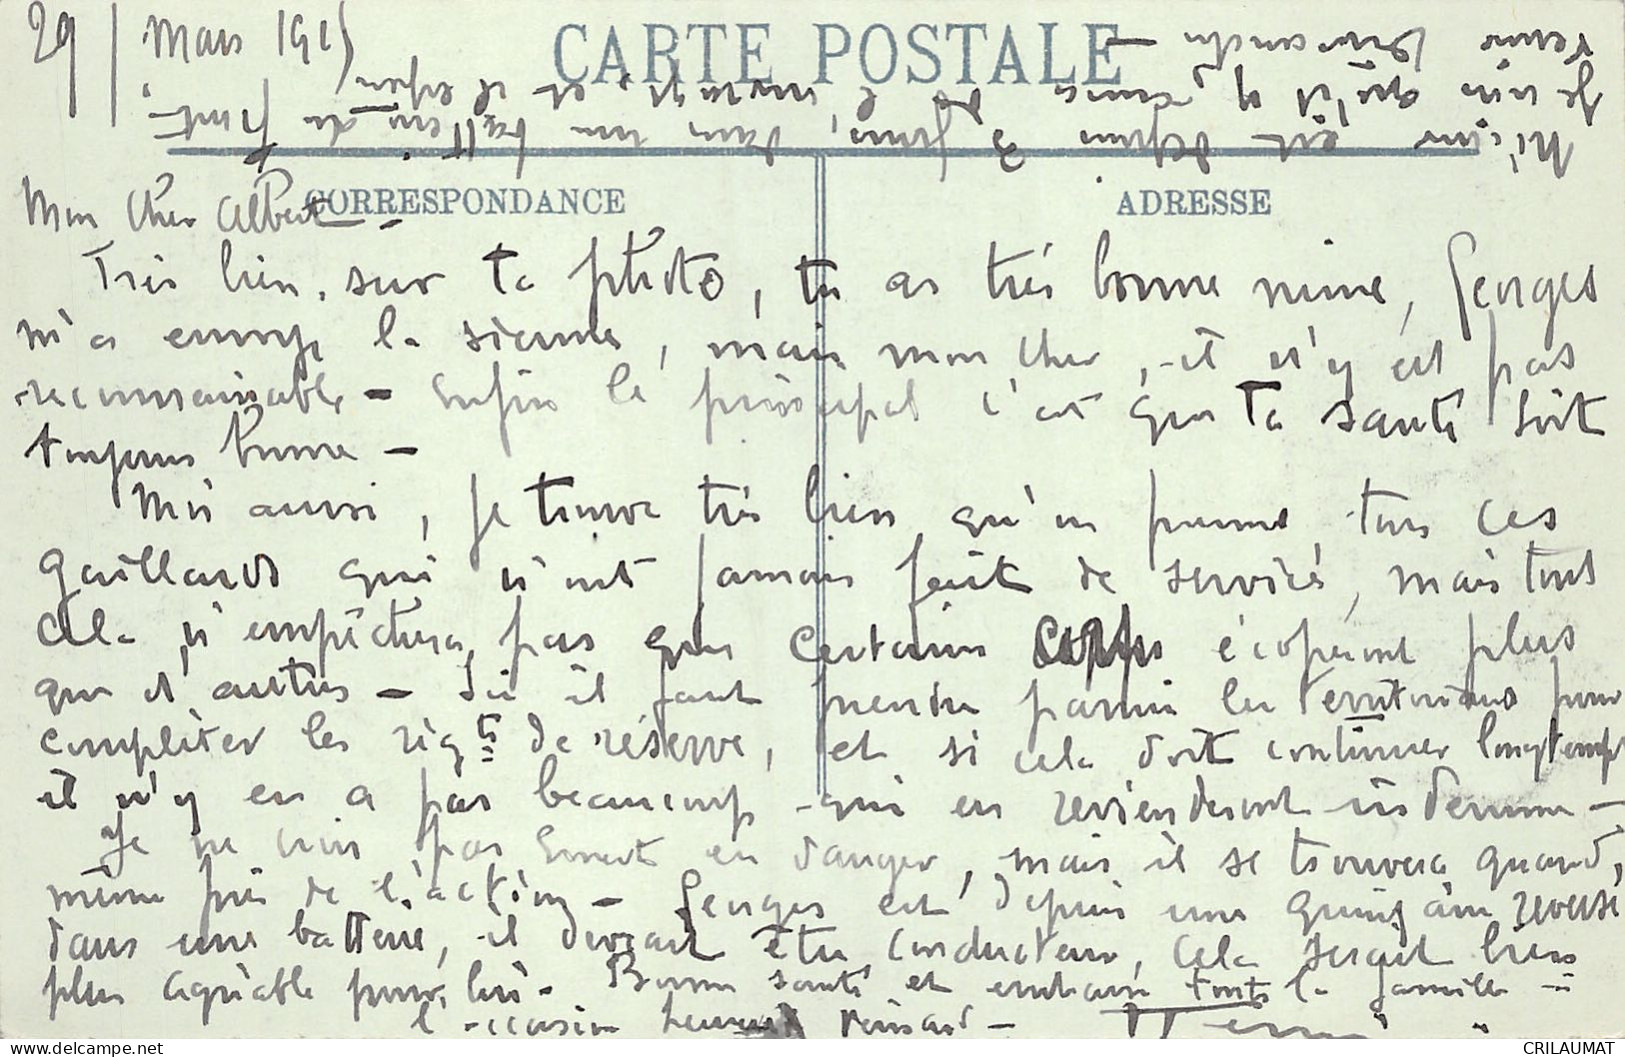 29 / Mars 1915
CARTE POSTALE
CORRESPONDANCE
ADRESSE
Mon cher Albert -
Très bien, sur ta photo, tu as très bonne mine, Georges
m'a envoyé la sienne, mais mon cher, il n'y est pas
reconnaissable - Enfin le principal c'est que ta santé soit
toujours bonne -
Moi aussi, je trouve très bien qu'on prenne tous ces
gaillards qui n'ont jamais fait de service, mais tout
cela n'empêchera pas que certains corps écoperont plus
que d'autres - Si il faut prendre parmi les territoriaux pour
compléter les régts de réserve, et si cela doit continuer longtemps
il n'y en a pas beaucoup qui en reviendront indemnes -
Je ne crois pas Ernest en danger, mais il se trouvera quand
même près de l'action - Georges est depuis une quinzaine reversé
dans une batterie, il devrait être conducteur, cela serait bien
plus agréable pour lui - Bonne santé et embrasse toute la famille =
l'occasion
est depuis 3 jours, dans un bataillon du front -
Je crois qu'il y aura de et espère